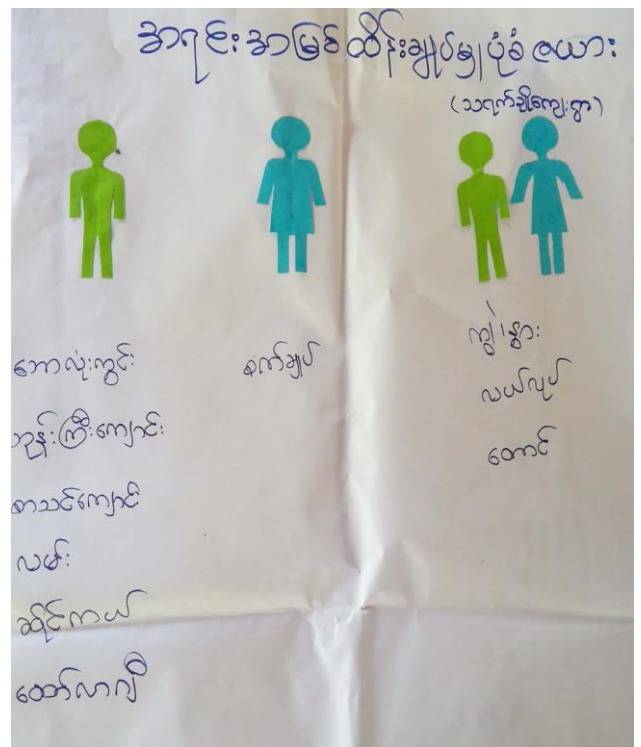 အရင်းအမြစ်ထိန်းချုပ်မှုပုံစံဇယား
(သရက်ချိုကျေးရွာ)
ဘောလုံးကွင်း
ဘုန်းကြီးကျောင်း
စာသင်ကျောင်း
လမ်း
ဆိုင်ကယ်
ထော်လာဂျီ
စက်ချုပ်
ကျွဲ၊နွား
လယ်လုပ်
တောင်